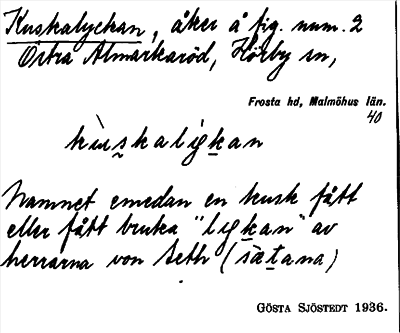 Kuskalyckan, åker å fig. num. 2
Östra Almarkaröd, Hörby sn,
Frosta hd, Malmöhus län.
40
kùskaligkan
Namnet emedan en kusk fått
eller fått bruka "ligkan" av
herrarna von Seth (sætana)
GÖSTA SJÖSTEDT 1936.